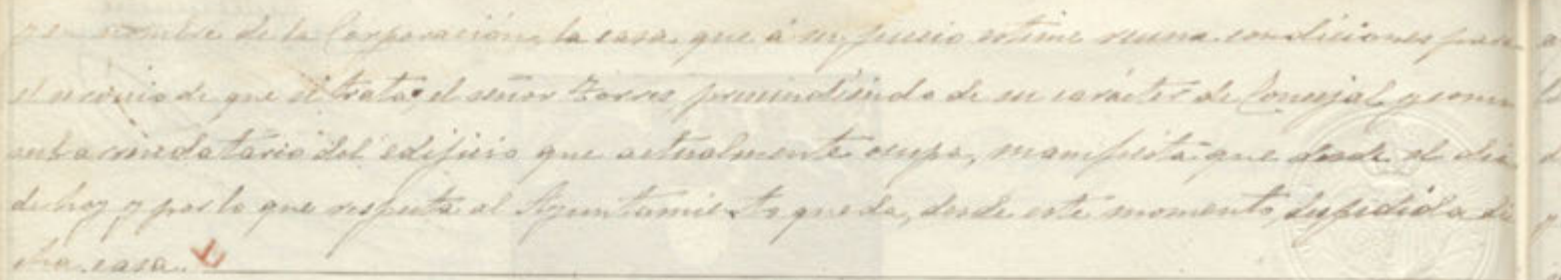 y en nombre de la Corporación, la casa que á su juicio estime reuna condiciones para
el servicio de que se trata, el señor Torres, prescindiendo de su carácter de Concejal y como
subarrendatario del edificio que actualmente ocupa, manifiesta que desde el dia
de hoy y por lo que respecta al Ayuntamiento queda, desde este momento, despedida di
cha casa.